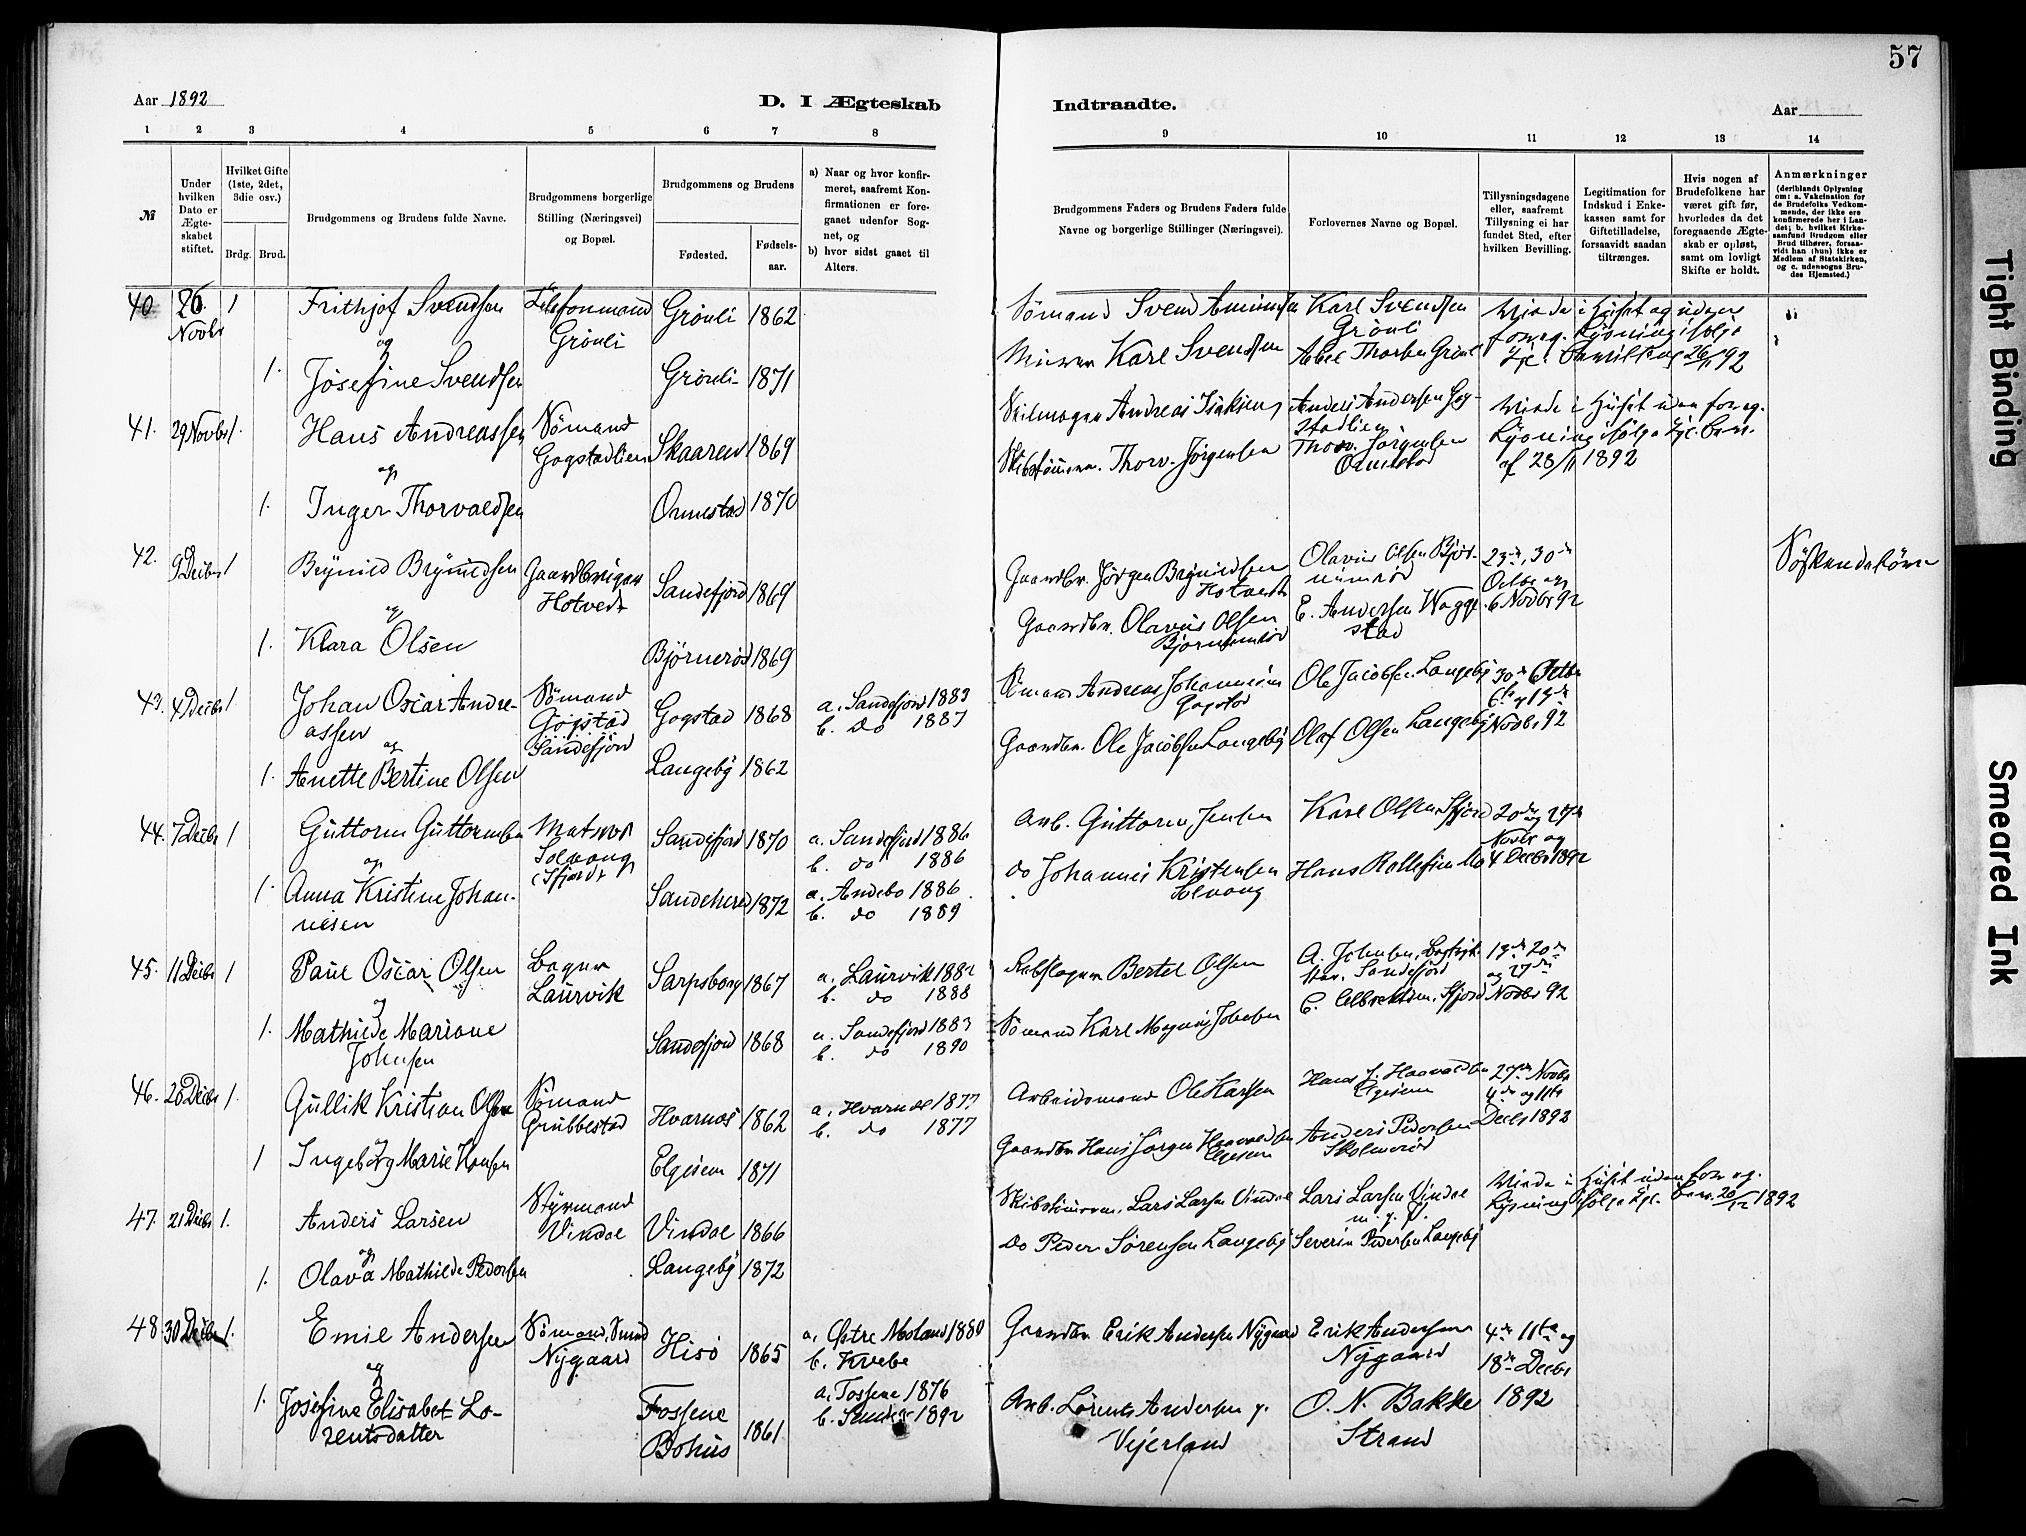 57
Aar 1892
D. I Ægteskab
Indtraadte.
Aar
1 2 3 4 5 6 7 8
9 10 11 12 13 14
№
Under hvilken Dato er Ægteskabet stiftet.
Hvilket Gifte (1ste, 2det, 3die osv.)
Brdg. Brud.
Brudgommens og Brudens fulde Navne.
Brudgommens borgerlige Stilling (Næringsvei) og Bopæl.
Brudgommens og Brudens
Fødested.
Fødselsaar.
a) Naar og hvor konfirmeret, saafremt Konfirmationen er foregaaet udenfor Sognet, og
b) hvor sidst gaaet til Alters.
Brudgommens Faders og Brudens Faders fulde Navne og borgerlige Stillinger (Næringsvei).
Forlovernes Navne og Bopæl.
Tillysningsdagene eller, saafremt Tillysning ei har fundet Sted, efter hvilken Bevilling.
Legitimation for Indskud i Enkekassen samt for Giftetilladelse, forsaavidt saadan tiltrænges.
Hvis nogen af Brudefolkene har været gift før, hvorledes da det foregaaende Ægteskab er opløst, samt om lovligt Skifte er holdt.
Anmærkninger
(deriblandt Oplysning om: a. Vakcination for de Brudefolks Vedkommende, der ikke ere konfirmerede her i Landet; b. hvilket Kirkesamfund Brudgom eller Brud tilhører, forsaavidt han (hun) ikke er Medlem af Statskirken, og c. udensogns Brudes Hjemsted.)
40 26 Novbr 1 Frithjof Svendsen Grönli Grönli 1862
og
1. Josefine Svendsen Grönli 1871
Sömand Svend Karl Svendsen Grönli
Murer Karl Svendsen Abel
Viede i Huset og uden
foreg. Lysning ifölge
Kgl. Bevilling 26/11 92
41. 29 Novbr 1. Hans Andreassen Sömand Gogstadlien Skaaren 1869
og
1. Inger Thorvaldsen Ormestad 1870
Andreas Isaksen, Anders Andersen Gogstadlien
Skibstömrm. Thorv. Jörgensen Thorv. Jörgensen Ormestad
Viede i Huset uden foreg.
Lysning ifölge Kgl. Bev.
af 28/11 1892
42. 9 Decbr 1 Brynild Brynildsen Gaardbruger Hotvedt Sandefjord 1869
og
1. Klara Olsen Björneröd 1869
Gaardbr. Jörgen Brynildsen Hotvedt Olavus Olsen
Gaardbr. Olavus Olsen E. Andersen Wæggestad
23de, 30de
Octbr og
6 Novbr 92
Söskendebörn
43. 4 Decbr 1 Johan Oscar Andreassen Sömand Gogstad Sandefjord Gogstad 1868 a. Sandefjord 1883
b. do 1887
og
1. Anette Bertine Olsen Langeby 1862
Sömand Andreas Johannesen Gogstad Ole Jacobsen Langeby 30te Octbr
6te og 13de
Gaardbr. Ole Jacobsen Langeby Olaf Olsen Langeby Novbr 92
44. 7 Decbr 1 Guttorm Guttormsen Matros Solvang Sandefjord 1870 a. Sandefjord 1886
b. do 1886
og
1. Anna Kristine Johannesen Sandeherred 1872 a. Andebo 1886
b. do 1889
Arb. Guttorm Jensen Karl Olsen, Sfjord 20de 27de
Novbr og
do Johannes Kristensen Solvang Hans Rollefsen 4 Decbr 1892
45. 11 Decbr 1 Paul Oscar Olsen Bager Laurvik Sarpsborg 1867 a. Laurvik 1882
b. do 1888
og
1. Mathilde Mariane Johnsen Sandefjord 1868 a. Sandefjord 1883
b. do 1890
Rebslager Bertel Olsen A. Johnsen, Sandefjord 13de 20de
og 27de
Sömand Karl Magnus Johnsen C. Albrektsen, Sfjord Novbr 92
46. 28 Decbr 1. Gullik Kristian Olsen Sömand Grubbestad Hvarnes 1862 a. Hvarnes 1877
b. do 1877
og
1 Ingeborg Marie Hansen Elgesem 1871
Arbeidsmand Ole Larsen Hans J. Haavaldsen Elgesem 27de Novbr
4de og 11te
Gaardbr Hans Jorgen Haavaldsen Elgesem Anders Pedersen Skolmeröd Decbr 1892
47. 21 Decbr 1. Anders Larsen Styrmand Vindal Vindal 1866
og
1. Olava Mathilde Pedersen Langeby 1872
Skibstömrm. Lars Larsen Vindal Lars Larsen Vindal
m. f. P.
Do Peder Sörensen Langeby Severin Pedersen Langeby
Viede i Huset uden foreg.
Lysning ifölge Kgl. Bev. 20/12 1892
48 30 Decbr 1. Emil Andersen Sömand, Nygaard Hisö 1865 a. Östre Moland 1880
b. Kvebe
og
1. Josefine Elisabet Lorentsdatter Fossene Bohus 1861 a. Tossene 1876
b. 1892
Gaardbr Erik Andersen Nygaard Erik Andersen Nygaard 4de 11te og
18de Decbr
1892
Arb. Lörents Andersen Vejerland O. N. Bakke Strand
Tight Binding
Smeared Ink